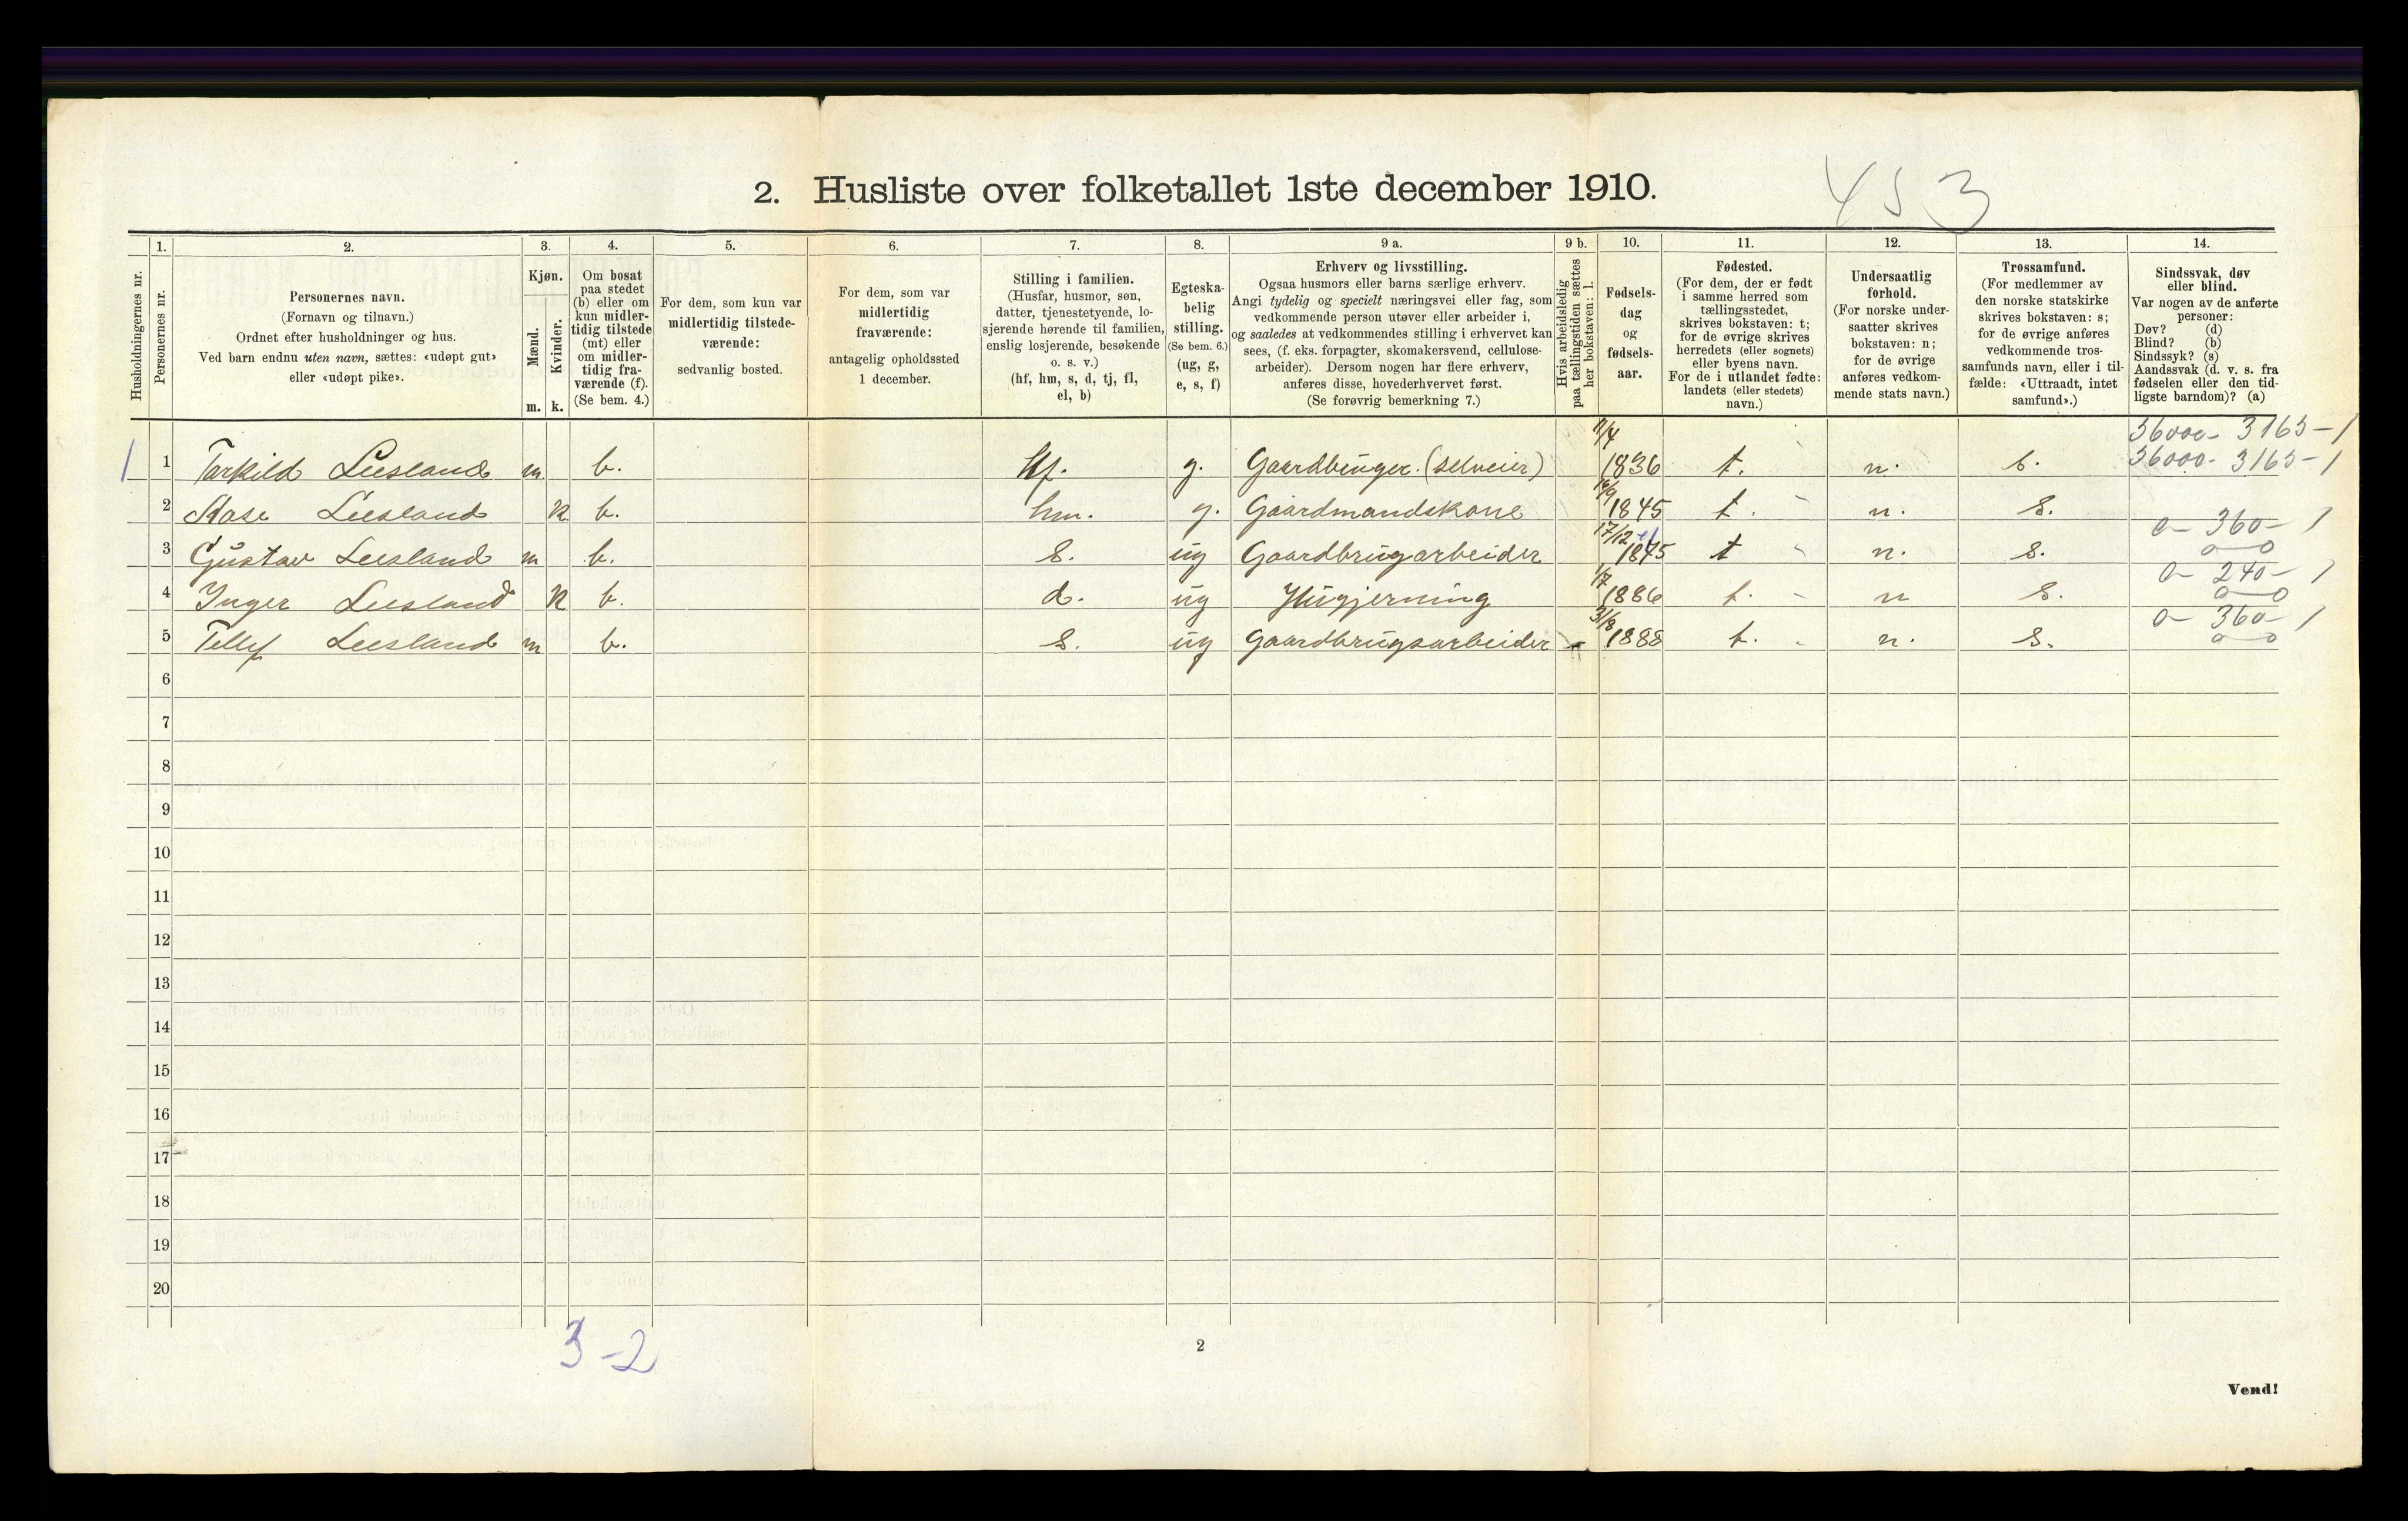 2. Husliste over folketallet 1ste december 1910.
453
1. 2. 3. 4. 5. 6. 7. 8. 9 a. 9 b. 10. 11. 12. 13. 14.
Husholdningernes nr.
Personernes nr.
Personernes navn.
(Fornavn og tilnavn.)
Ordnet efter husholdninger og hus.
Ved barn endnu uten navn, sættes: «udøpt gut»
eller «udøpt pike».
Kjøn.
Mænd.
Kvinder.
m. k.
Om bosat
paa stedet
(b) eller om
kun midler-
tidig tilstede
(mt) eller
om midler-
tidig fra-
værende (f).
(Se bem. 4.)
For dem, som kun var
midlertidig tilstede-
værende:
sedvanlig bosted.
For dem, som var
midlertidig
fraværende:
antagelig opholdssted
1 december.
Stilling i familien.
(Husfar, husmor, søn,
datter, tjenestetyende, lo-
sjerende hørende til familien,
enslig losjerende, besøkende
o. s. v.)
(hf, hm, s, d, tj, fl,
el, b)
Egteska-
belig
stilling.
(Se bem. 6.)
(ug, g,
e, s, f)
Erhverv og livsstilling.
Ogsaa husmors eller barns særlige erhverv.
Angi tydelig og specielt næringsvei eller fag, som
vedkommende person utøver eller arbeider i,
og saaledes at vedkommendes stilling i erhvervet kan
sees, (f. eks. forpagter, skomakersvend, cellulose-
arbeider). Dersom nogen har flere erhverv,
anføres disse, hovederhvervet først.
(Se forøvrig bemerkning 7.)
Hvis arbeidsledig
paa tællingstiden sættes
her bokstaven: l.
Fødsels-
dag
og
fødsels-
aar.
Fødested.
(For dem, der er født
i samme herred som
tællingsstedet,
skrives bokstaven: t;
for de øvrige skrives
herredets (eller sognets)
eller byens navn.
For de i utlandet fødte:
landets (eller stedets)
navn.)
Undersaatlig
forhold.
(For norske under-
saatter skrives
bokstaven: n;
for de øvrige
anføres vedkom-
mende stats navn.)
Trossamfund.
(For medlemmer av
den norske statskirke
skrives bokstaven: s;
for de øvrige anføres
vedkommende tros-
samfunds navn, eller i til-
fælde: «Uttraadt, intet
samfund».)
Sindssvak, døv
eller blind.
Var nogen av de anførte
personer:
Døv? (d)
Blind? (b)
Sindssyk? (s)
Aandssvak (d. v. s. fra
fødselen eller den tid-
ligste barndom)? (a)
36000- 3165-1
1 1 Tarkild Liesland m b. Hf. g. Gaardbruger (selveier) 11/4 1836 t. n. s. 36000- 3165-1
2 Aase Liesland k b. hm. g. Gaardmandskone 16/9 1845 t. n. s.
0- 360- 1
3 Gustav Liesland m b. s. ug Gaardbrugarbeider 17/12 1875 t n. s. 0-0
0- 240- 1
4 Inger Liesland k b. d. ug Husgjerning 1/7 1886 t. n s. 0-0
0- 360- 1
5 Tellef Liesland m b. s. ug Gaardbrugsarbeider - 31/8 1888 t. n. s. 0-0
6
7
8
9
10
11
12
13
14
15
16
17
18
19
20
3-2
2
Vend!